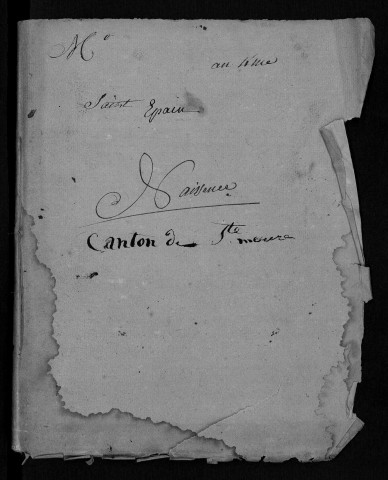 M°
an 4eme
Saint Epain
Naissence
Canton de Ste meure